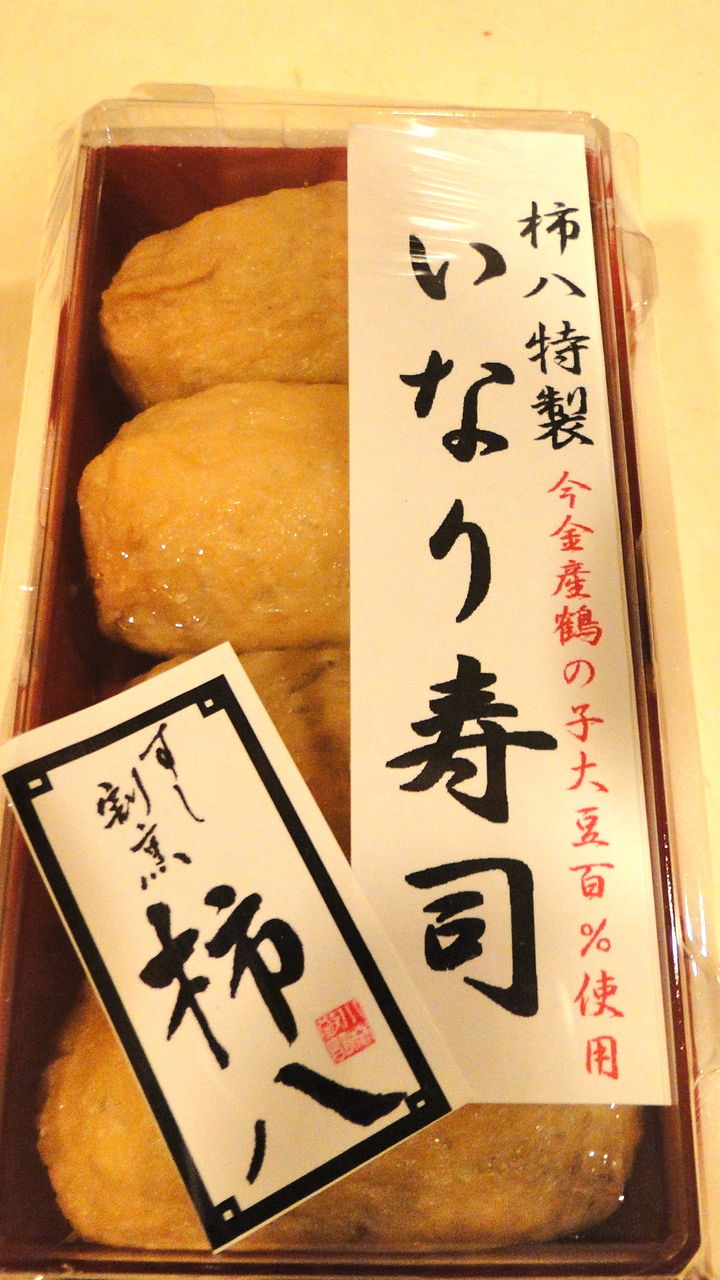 柿八特製
今金産鶴の子大豆百%使用
いなり寿司
すし
割烹
柿八